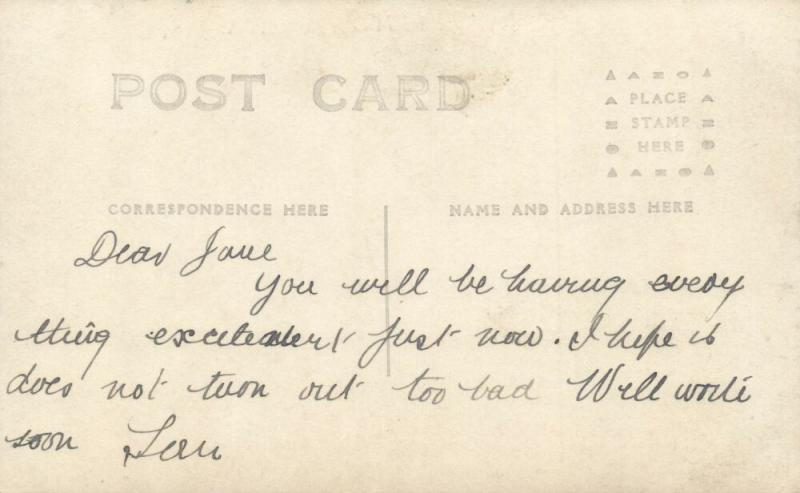 POST CARD
AZO
PLACE
STAMP
HERE
AZO
CORRESPONDENCE HERE
NAME AND ADDRESS HERE
Dear Jane
You will be having every
thing excitement just now. I hope it
does not turn out too bad Will write
soon